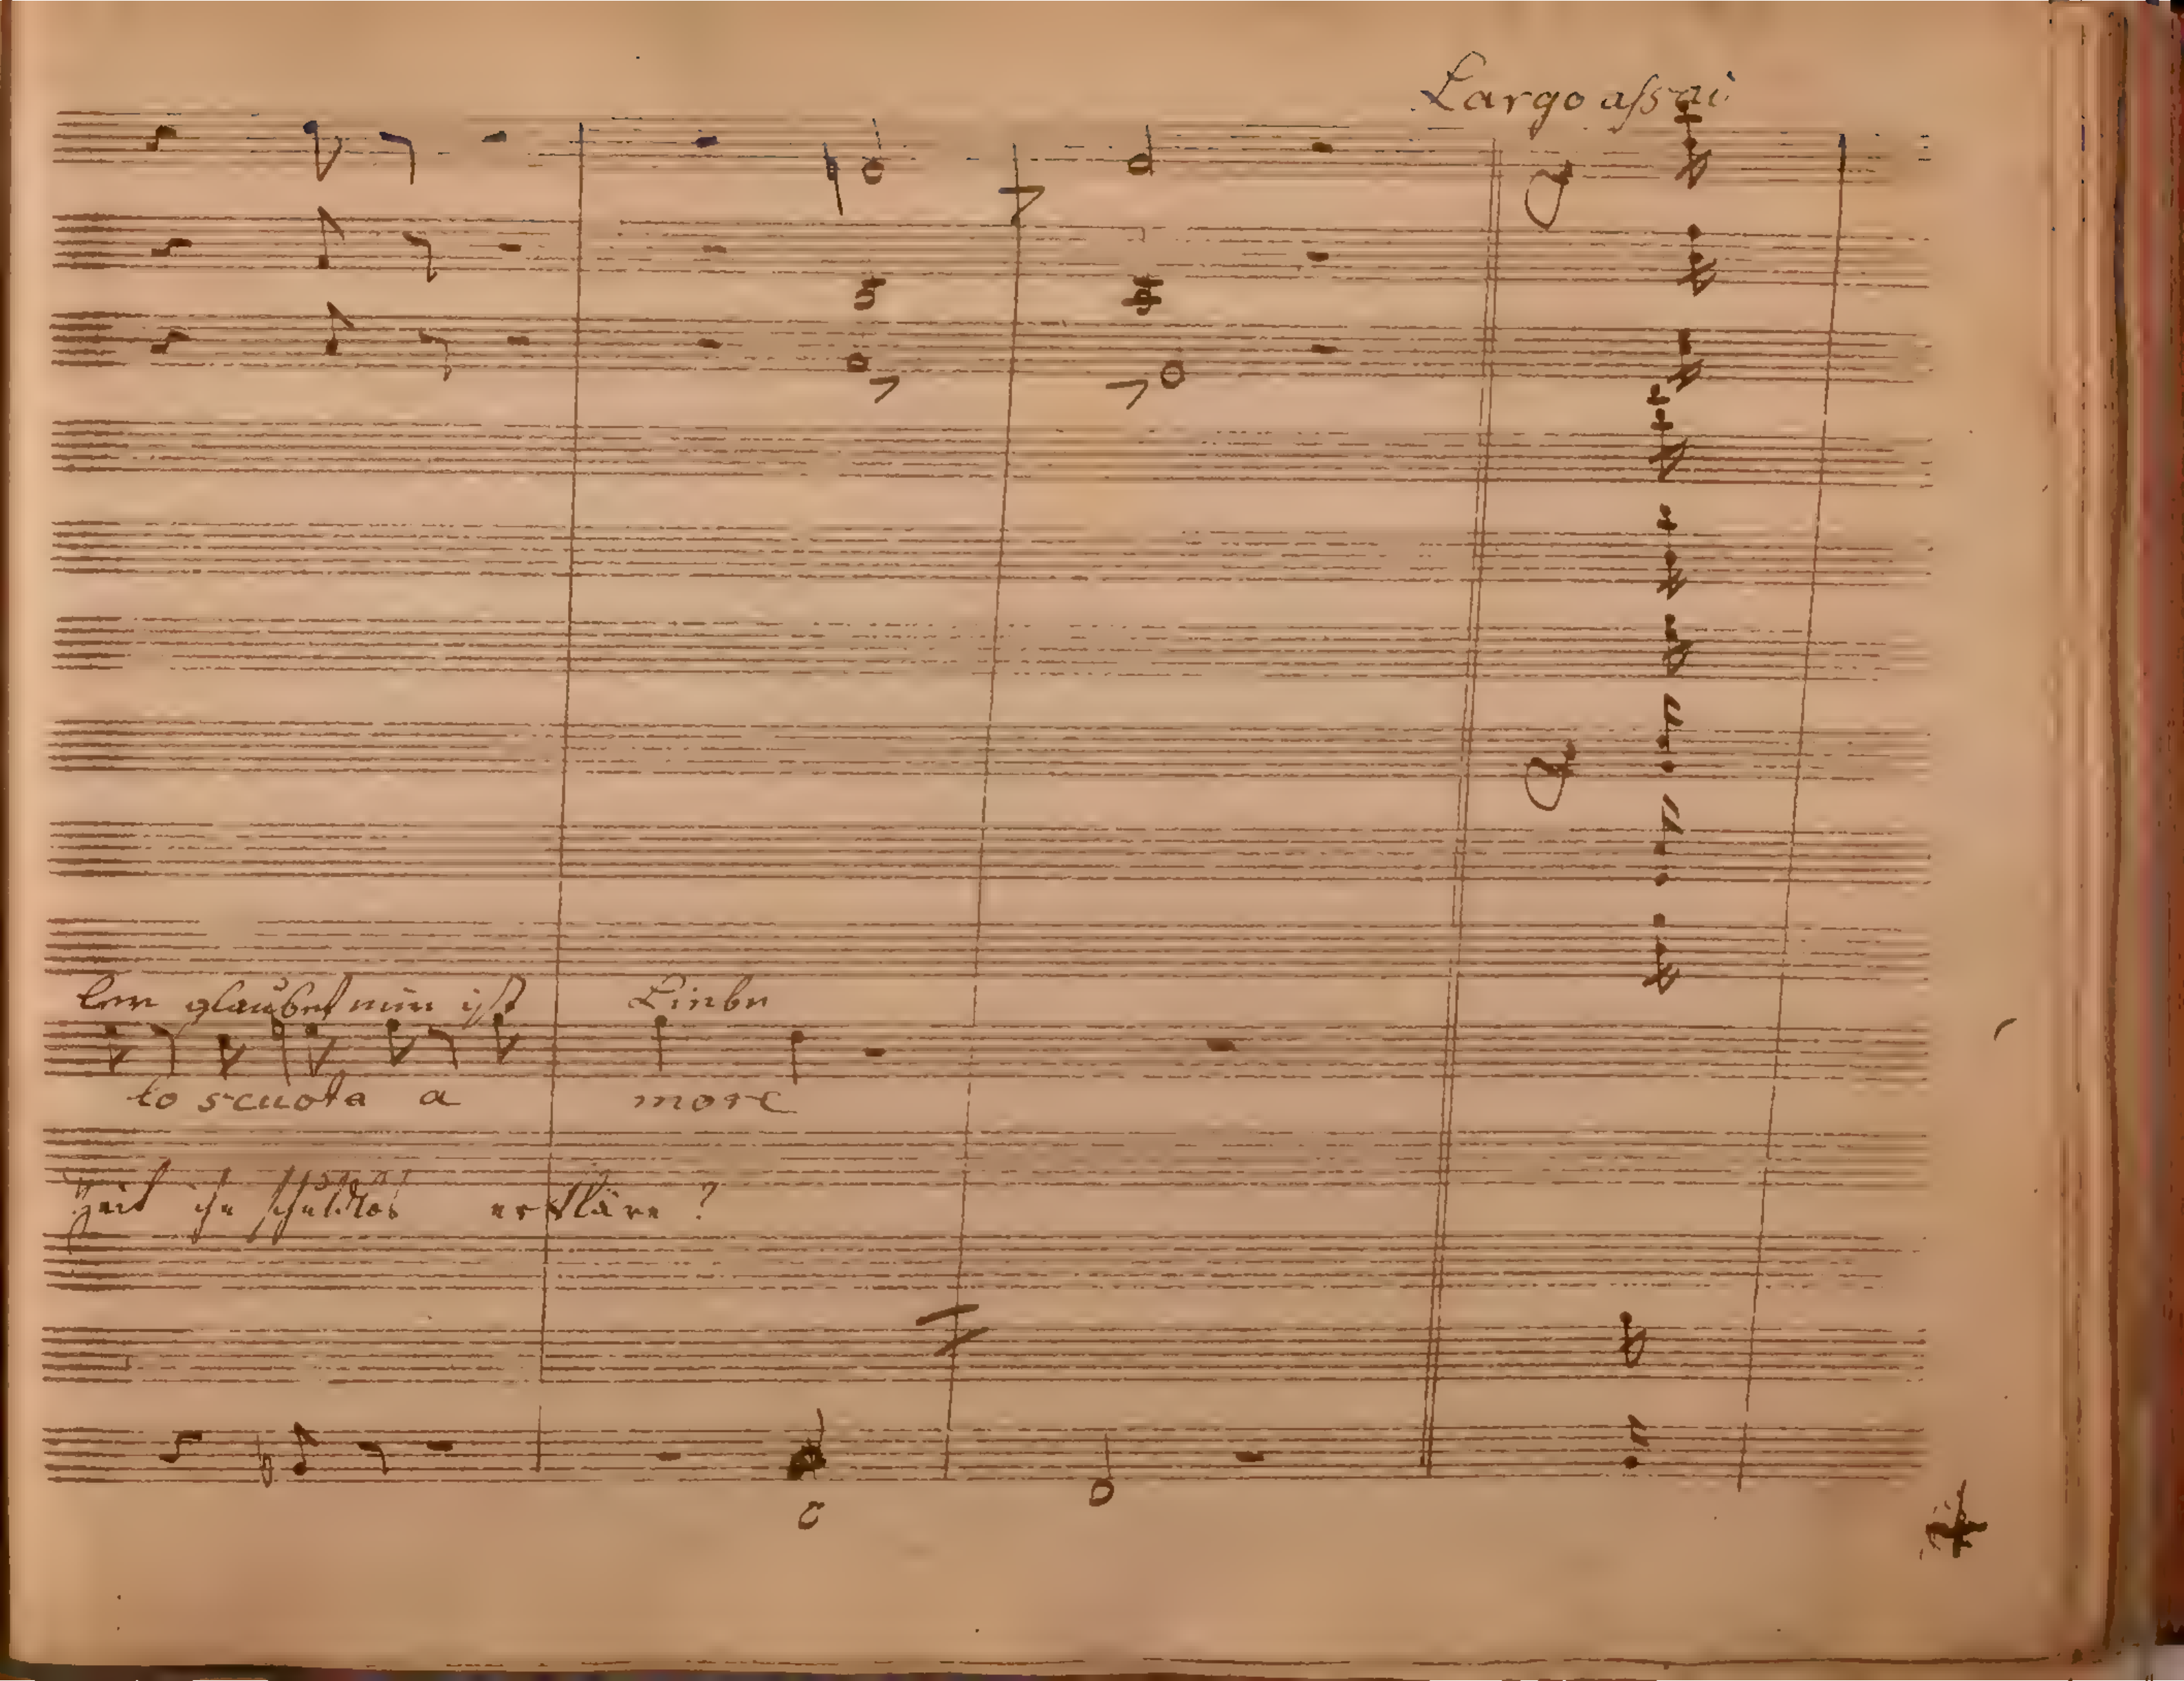 Largo assai
len glaubet nun ist Liebe
to scuota a more
Zeit ihn schuldlos erkläre?